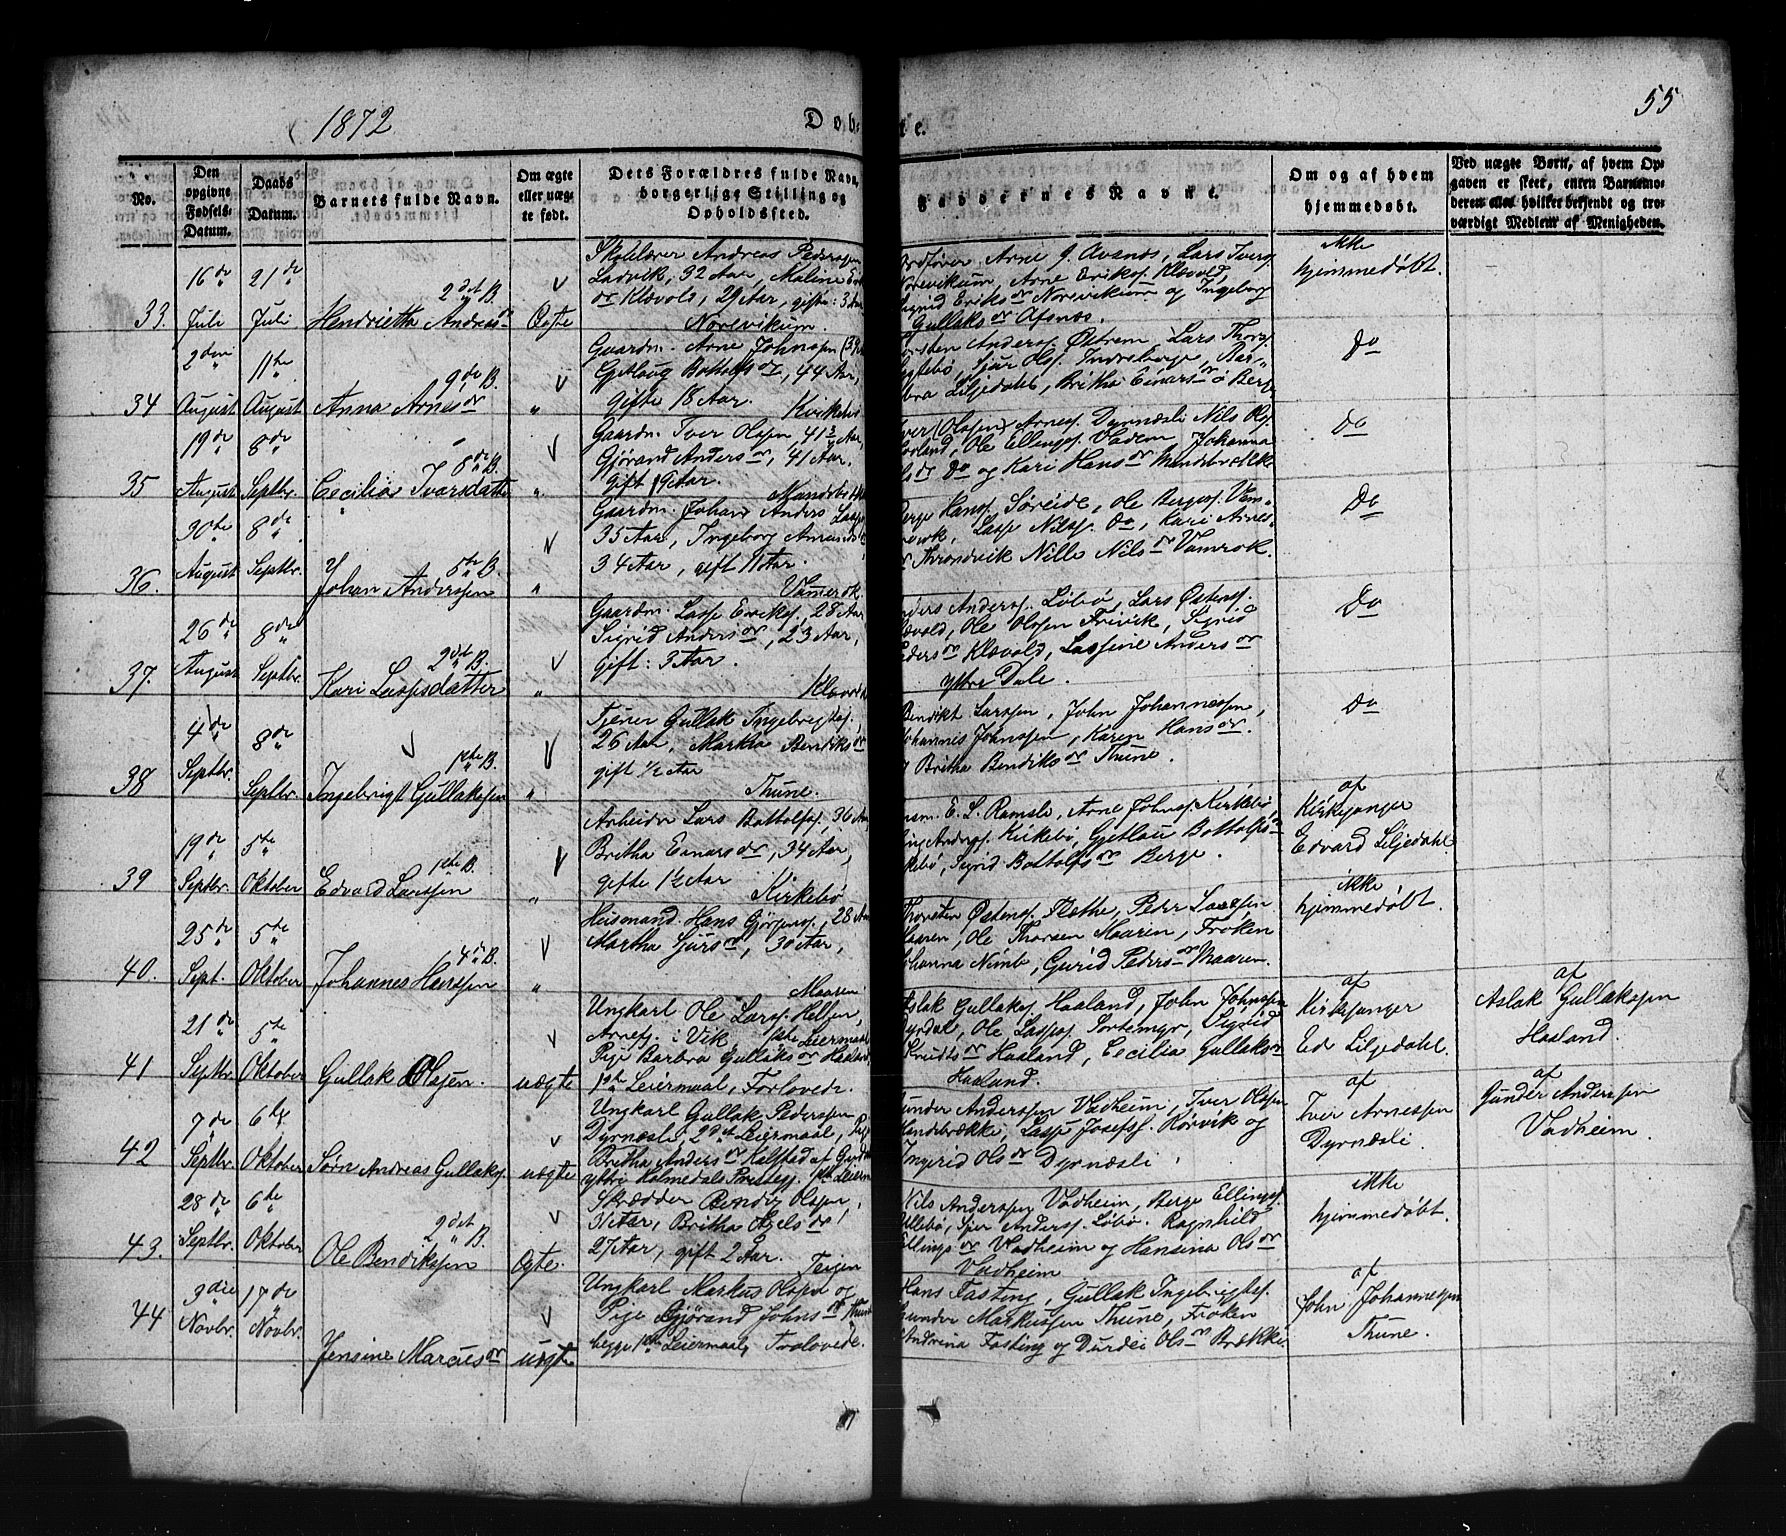 1872
Døb-
te.
55
No.
Den
opgivne
Fødsels-
Datum.
Daabs
Datum.
Barnets fulde Navn.
Om ægte
eller uæg-
te født.
Dets Forældres fulde Navn,
borgerlige Stilling og
Opholdssted.
Faddernes Navne.
Om og af hvem
hjemmedøbt.
Ved uægte Børn, af hvem Op-
gaven er skeet, enten Barnemo-
deren eller hvilket bekjendt og tro-
værdigt Medlem af Menigheden.
33.
16de
Juli
21de
Juli
2det B.
Henriette Andreasdr
Ægte
Skolelærer Andreas Pederssen
Ladvik, 32 Aar, Maline
dr Klævold, 29 Aar, gifte: 3
Norevikum.
Arne J. Avsnæs, Lars Ivers.
Norevikum, Arne Eriks. Klævold,
Sigrid Eriksdr Norevikum og Ingeborg
Gullaksdr Afsnæs.
ikke
hjemmedøbt.
34
2den
August
11te
August
9de B.
Anna Arnesdr
"
Gaardm. Arne Johnssen
Gjetlaug Bottolfsdr, 44 Aar,
gifte 18 Aar.
Anderss. Østrem, Lars Thors.
Sjur Ols. Indreberge, Bar-
bra Liljedahl, Britha Einarsdr Berge
Do
35
19de
August
8de
Septbr.
8de B.
Cecilia Iversdatter
"
Gaardm. Iver Olssen, 41½ Aar,
Gjørand Andersdr, 41 Aar.
gift 19 Aar.
Iver (Olssen) Arness. Dyrnæsli Nils Ols.
Ole Ellings. Vadem Johanna
Do og Kari Hansdr
Do
36.
30te
August
8de
Septbr.
5te B.
Johan Anderssen
"
Gaardm. Johan Anders
35 Aar, Ingeborg
34 Aar, gift 11 Aar.
Berge Hans. Søreide, Ole Berges. Vam-
Lasse Nils. Do, Kari Arnes-
Throndvik Nille Nilsdr Vamrok.
Do
37.
26de
August
8de
Septbr.
2det B.
Kari Lassesdatter
"
Gaardm. Lasse Eriks., 28 Aar
Sigrid Andersdr, 23 Aar,
gift: 3 Aar.
Anders Anderss. Løbø, Lars Østens.
Klævold, Ole Olssen Frivik, Sigrid
Klævold, Lassine Andersdr
Ytre Dale.
Do
38
4de
Septbr.
8de
Septbr.
1ste B.
Ingebrigt Gullakssen
"
Tjener Gullak Ingebrigts.
26 Aar, Martha Bendiksdr
gift ½ Aar
Thune.
Bendikt Larssen, John Johannessen,
Johannes Johnssen, Karen Hansdr.
Britha Bendiksdr Thune.
Do
39
19de
Septbr.
5te
Oktober
1ste B.
Edvard Larssen
"
Arbeider Lars Bottolfs., 36
Britha Einarsdr, 34 Aar,
gifte 1½ Aar
Kirkebø
E. L. Ramsli, Arne Johns. Kirkebø,
Anders. Kirkebø, Gjetlau Bottolfsdr
Sigrid Bottolfsdr Berge.
af
Kirkesanger
Edvard Liljedahl.
40.
25de
Sept.
5te
Oktober
4de B.
Johannes Hanssen
"
Husmand Hans Gjørgens., 28
Martha Sjursdr, 30 Aar,
Maaren
Thorsten Østens. Rethe, Peder Lassessen
Maaren, Ole Thorsen Maaren, Frøken
Johanna Nimb, Gurid Pedersdr Maaren.
ikke
hjemmedøbt.
41
21de
Septbr.
5te
Oktober
Gullak Olssen.
uægte
Ungkarl Ole Larss.
i Vik, 1ste Leiermaal
Pige Barbra Gullaksdr Haaland
1ste Leiermaal, Forlovede.
Aslak Gullaks. Haaland, John Johnssen
Dyrdal, Ole Lasses. Sortemyr, Sigrid
Knudtsdr Haaland, Cecilia Gullaksdr
Haaland.
af
Kirkesanger
Ed Liljedahl.
af
Aslak Gullakssen
Haaland.
42
7de
Septbr.
6te
Oktober
Sørn Andreas Gullaks.
uægte
Ungkarl Gullak Pederssen
Dyrnæsli, 2det Leiermaal, Pige
Britha Andersdr Halstad af
Yttre Holmedals Prestegj. 1ste Leierm
Gunder Anderssen Vadheim, Iver Olssen
Lasse Josefs. Rørvik og
Ingerid Olsdr Dyrnæsli.
af
Iver Arnessen
Dyrnæsli
af
Gunder Anderssen
Vadheim.
43.
28de
Septbr.
6te
Oktober
2det B.
Ole Bendikssen
Ægte.
Skrædder Bendix Olssen,
31 Aar, Britha Axelsdr,
27 Aar, gift 2 Aar.
Teigen
Nils Anderssen Vadheim, Berge Ellings.
Anders. Løbø. Ragnhild
Ellingsdr Vadheim og Hansina Olsdr
Vadheim
ikke
hjemmedøbt.
44
3die
Novbr.
17de
Novbr.
Jensine Marcusdr
uægte
Ungkarl Markus Olssen og
Pige Gjørand Johnsdr Thune
begge 1ste Leiermaal, Trolovede.
Hans Fasting, Gullak Ingebrigts.
Gunder Markussen Thune, Frøken
Andrina Fasting og Durdei Olsdr Brække
af
John Johannessen
Thune.